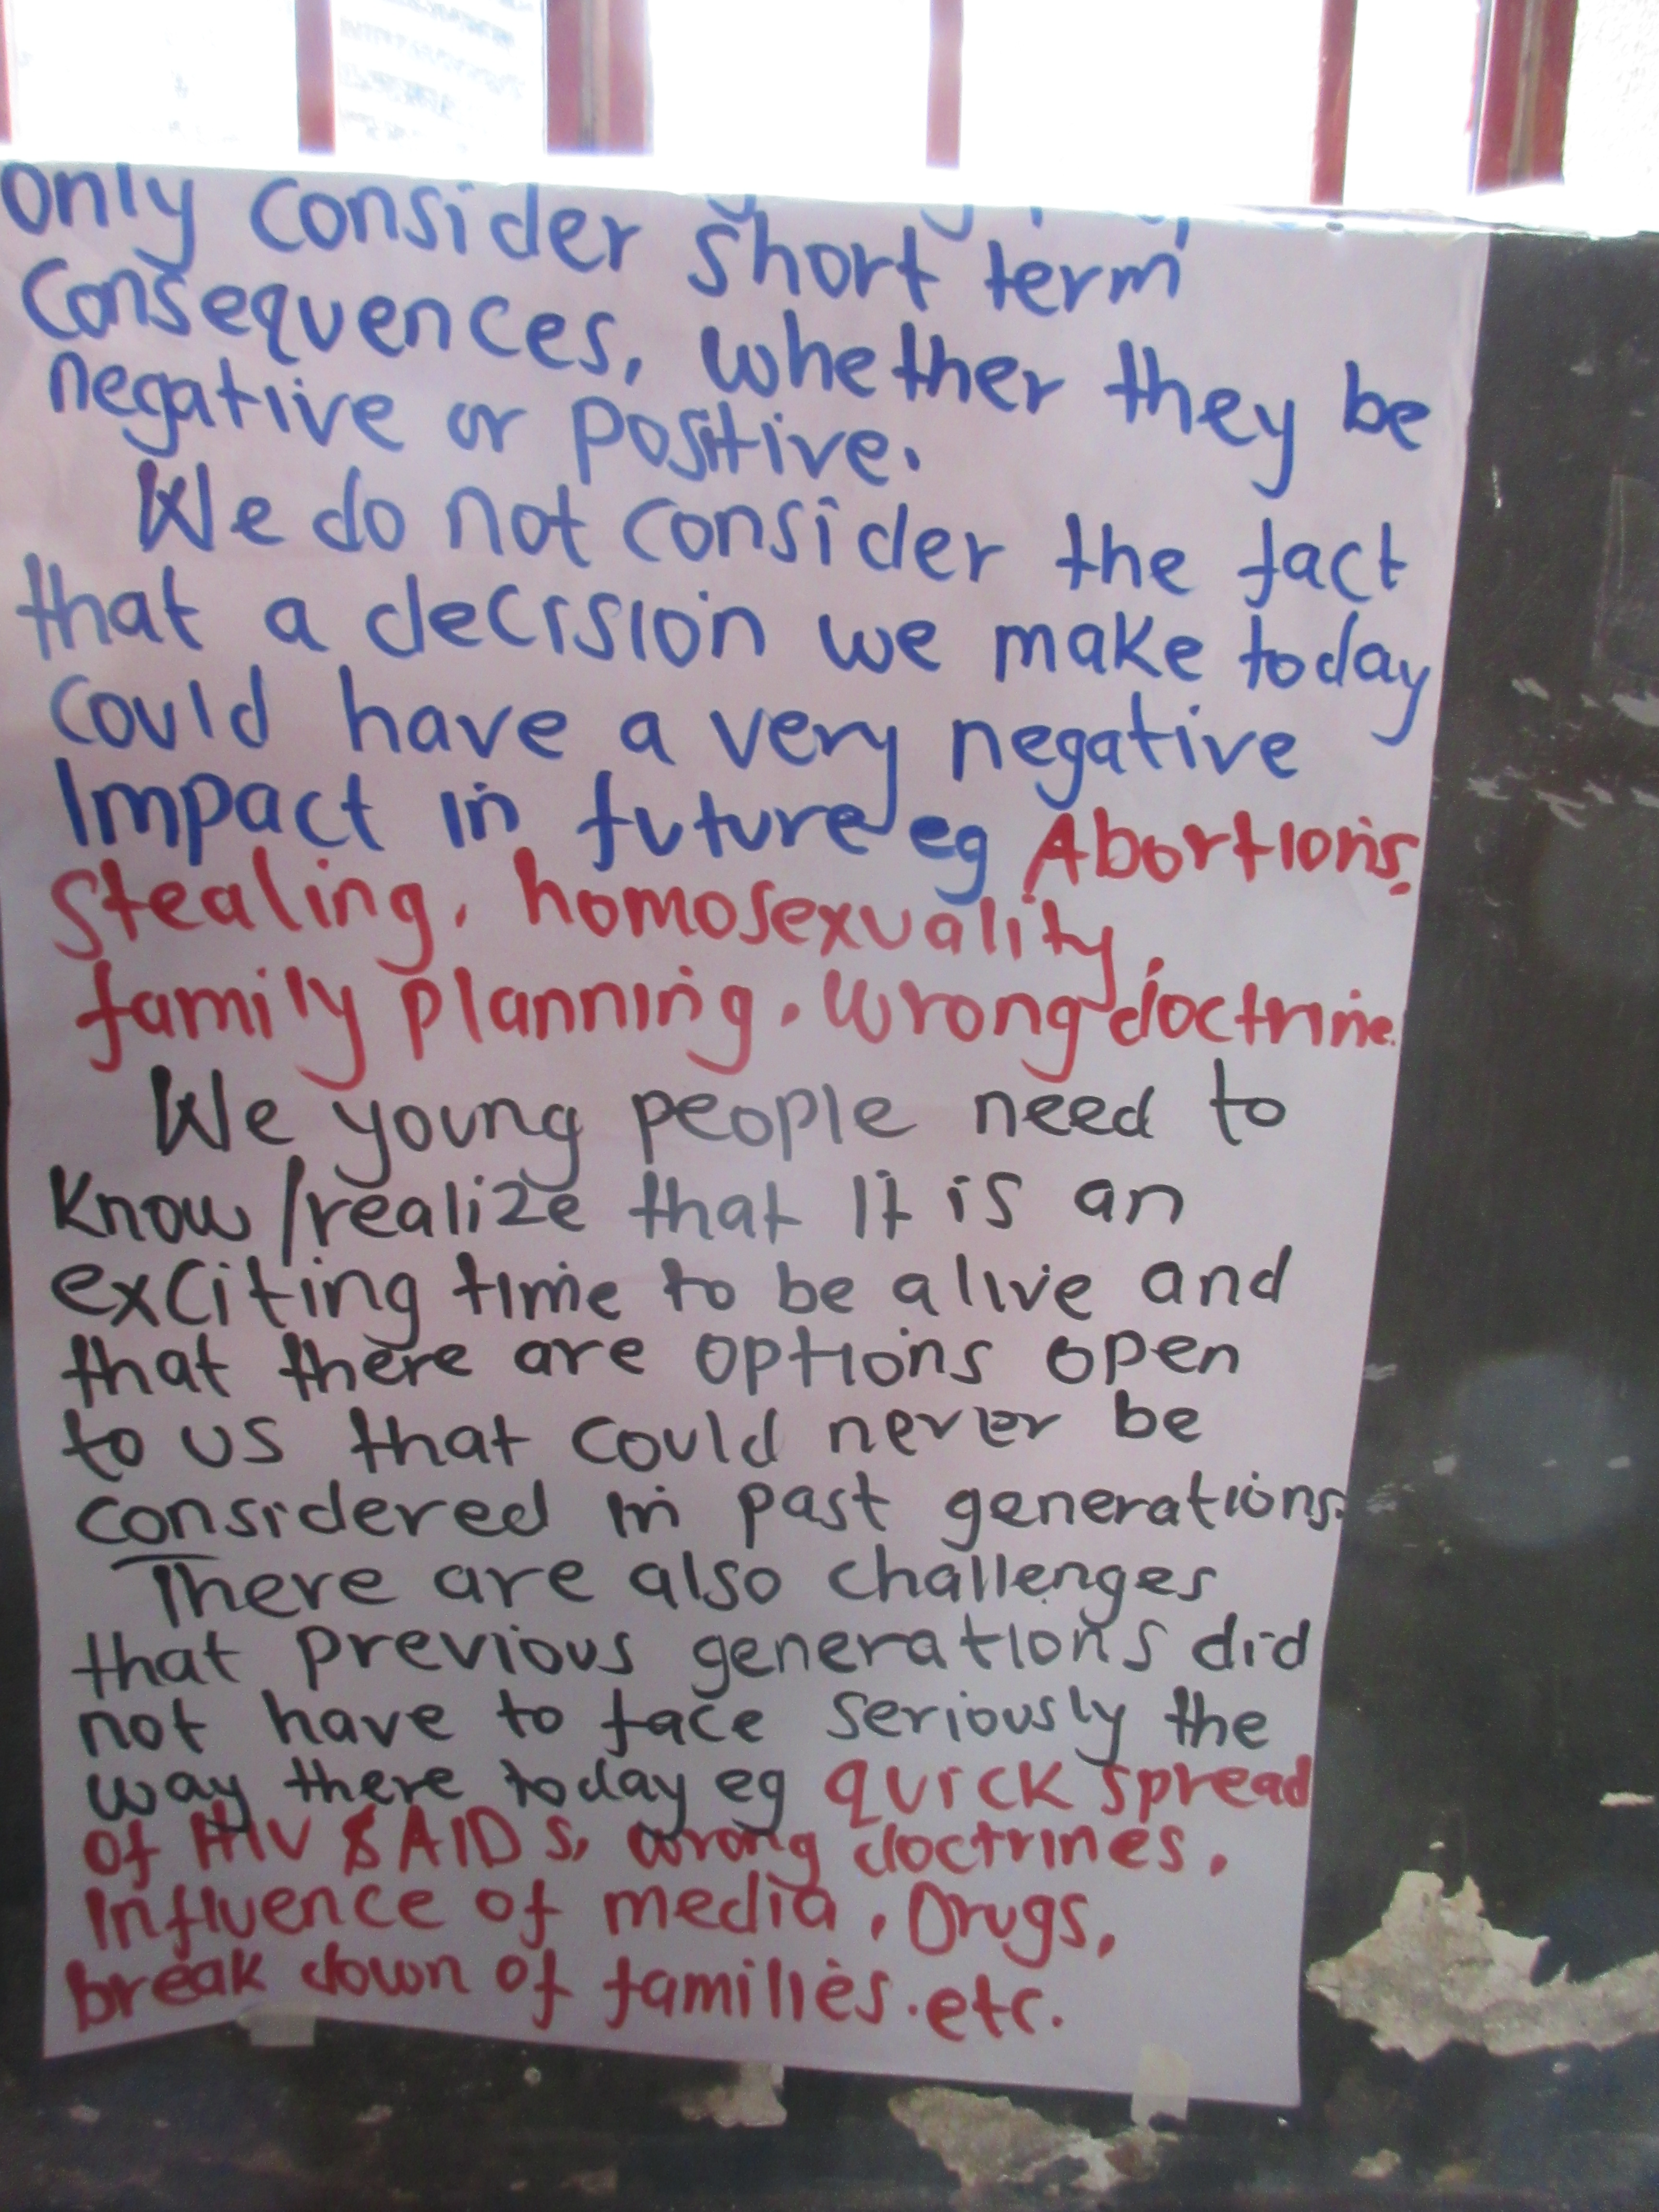 only consider short term
Consequences, whether they be
negative or positive.
We do not consider the fact
that a decision we make today
could have a very negative
Impact in future eg Abortions,
Stealing, homosexuality,
family planning, wrong doctrine.
We young people need to
Know/realize that it is an
exciting time to be alive and
that there are options open
to us that could never be
considered in past generations.
There are also challenges
that previous generations did
not have to face seriously the
way there today eg quick spread
of HIV & AIDS, wrong doctrines,
Influence of media, Drugs,
break down of families.etc.